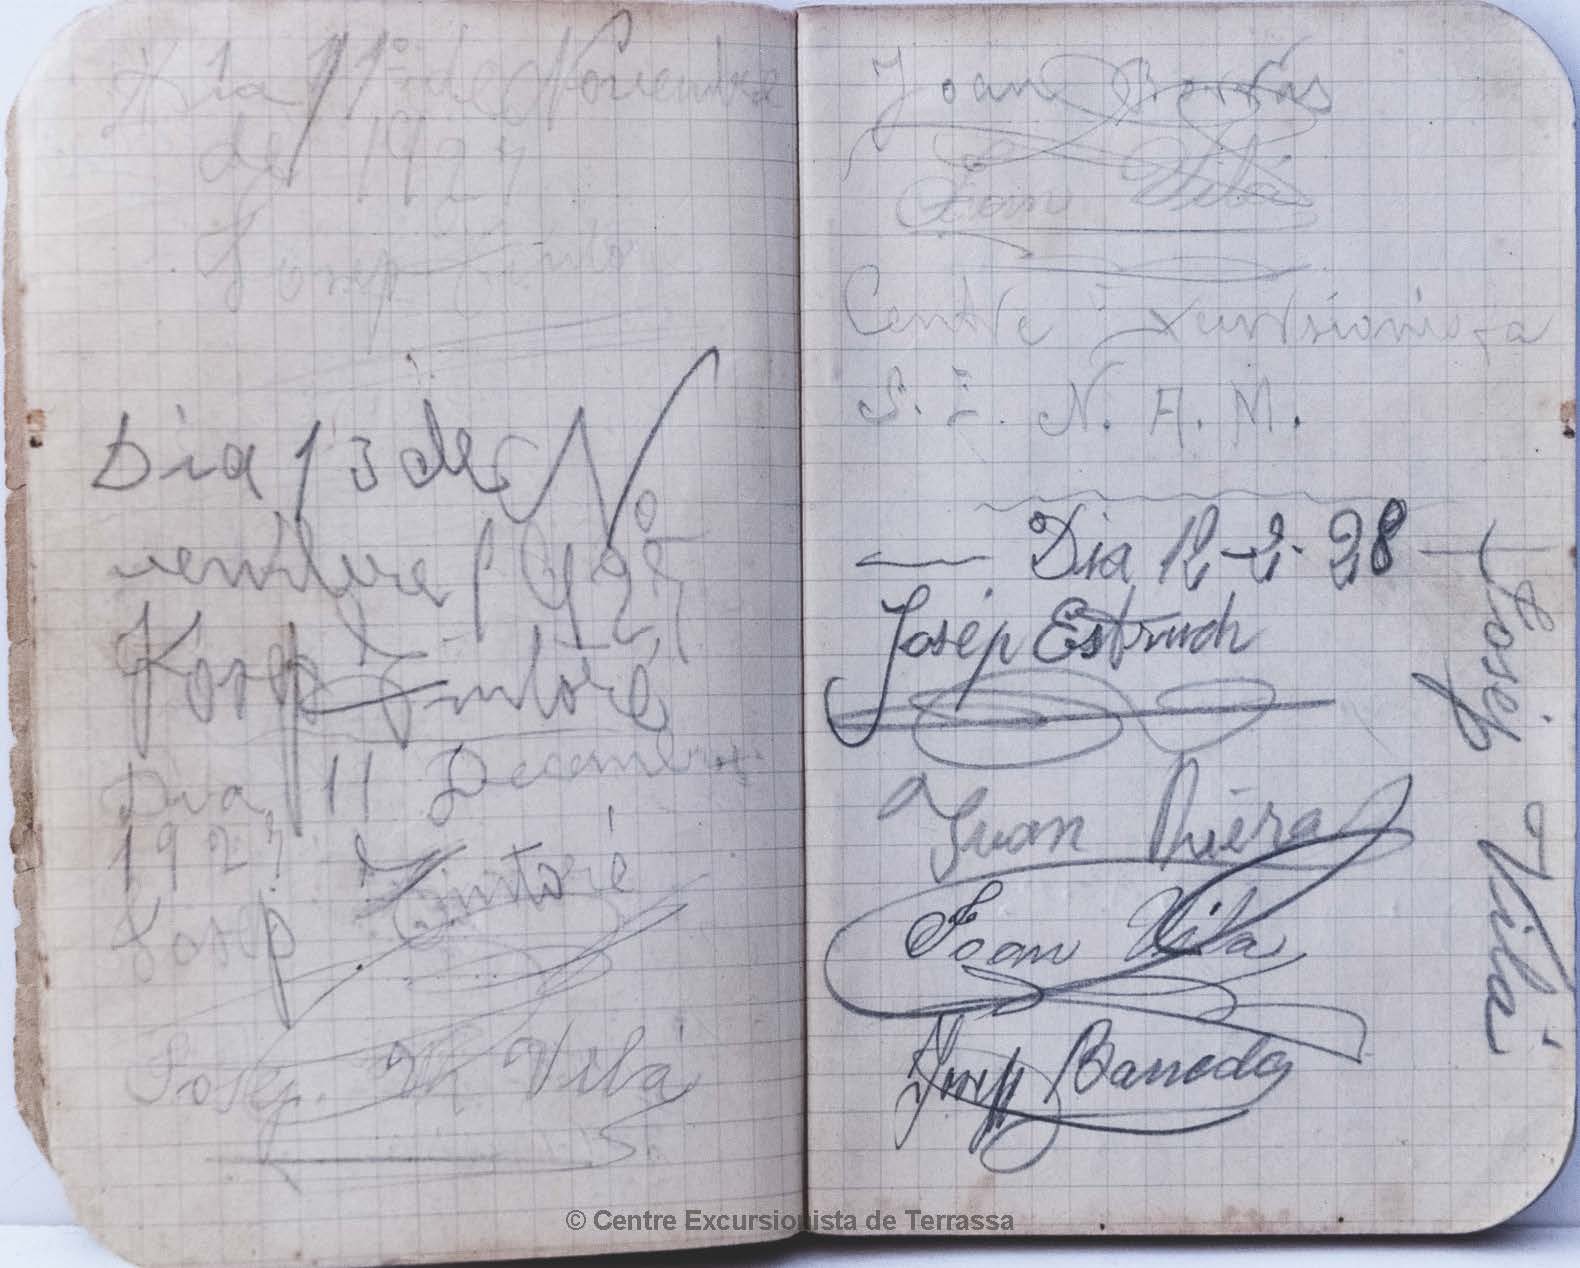 Dia 11 de Novembre
de 1927
Josep Tintó
Dia 13 de No
vembre 1927
Josep Tintoré
Dia 11 Decembre
1927
Josep Tintoré
Josep M. Vilá
Joan
Joan Vilá
Centre Excursionista
S. E. N. A. M.
Dia 12-2-28
Josép Estruch
Juan Riéra
Joan Vila
Josep Barreda
Joséf Vilá
© Centre Excursionista de Terrassa